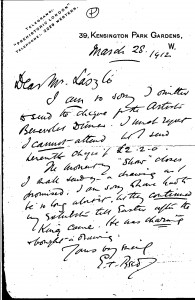 TELEGRAMS,
"PREHISTORIC LONDON"
TELEPHONE, WESTERN.
39, KENSINGTON PARK GARDENS,
W.
March 28. 1912.
Dear Mr. László
I am so sorry I omitted
to send to cheque for the Artists
Benevolent Dinner. I much regret
I cannot attend but I send
herewith cheque £2.2.0.
The moment my 'Show' closes
I shall send a drawing as I
promised. I am sorry I have had to
be so long about it but they continued
my Exhibition till Easter after the
King came. He was charming
& bought a drawing.
Yours very truly
E. T. Reed